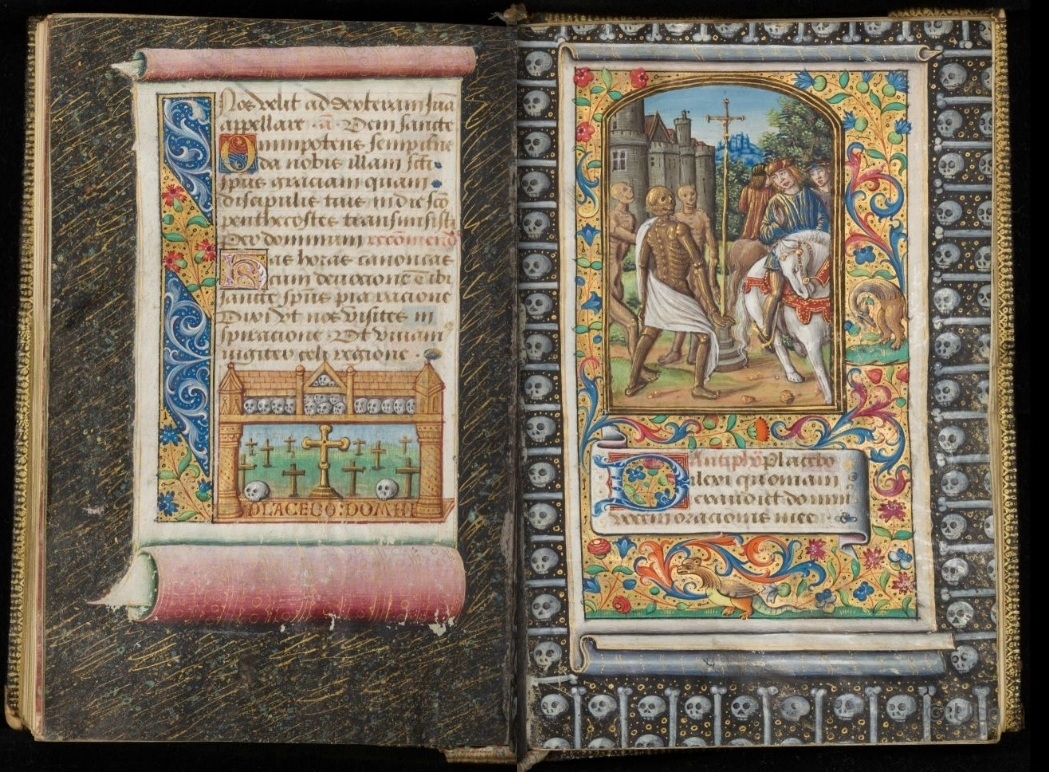 Nos velit ad dexteram sua
appellare Dem sancte
Omnipotens sempitne
da nobis illam scti
spus graciam quam
discipulis tuis in die sco
penthecostes transmisisti
Per dominum recomend
Has horas canonicas
cum devocione tibi
sancte spus pia racione
Dixi ut nos visites in
spiracione Et vivam
iugiter celi regione
PLACEBO:DOMINE
Antiphō Placebo
Dilexi quoniam
exaudiet domin
vocem oracionis mee